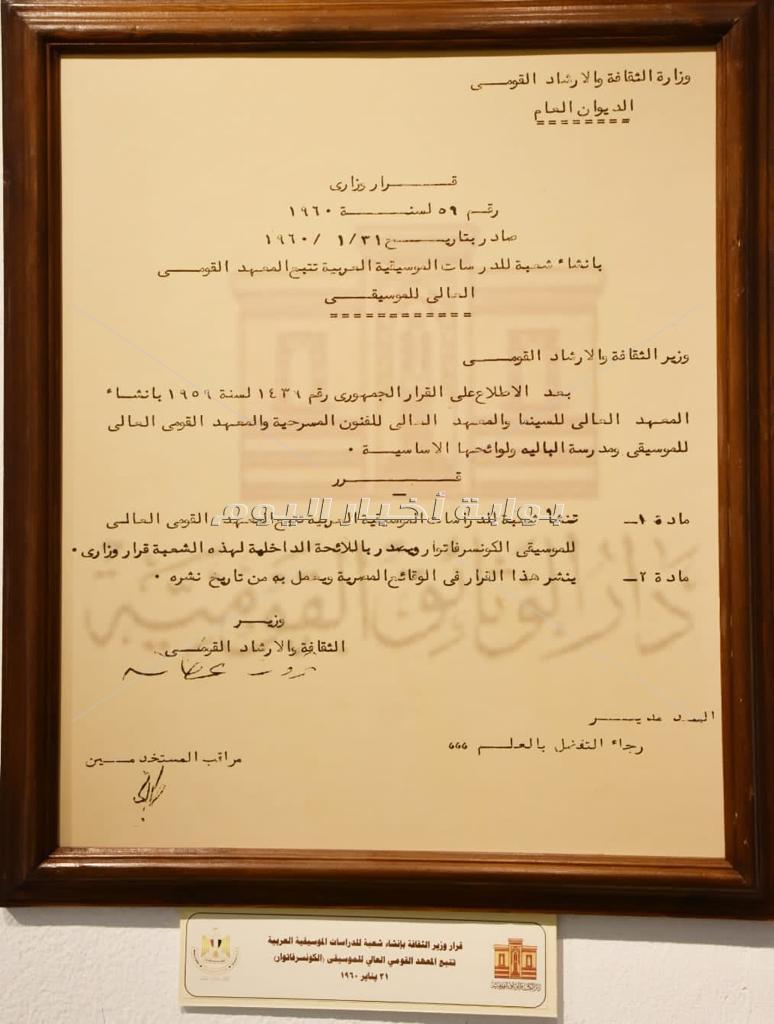 وزارة الثقافة والارشاد القومى
الديوان العام
قرار وزارى
رقم ٥٩ لسنة ١٩٦٠
صادر بتاريخ ١/٣١ /١٩٦٠
بانشاء شعبة للدراسات الموسيقية العربية تتبع المعهد القومى
العالى للموسيقى
وزير الثقافة والارشاد القومى
بعد الاطلاع على القرار الجمهورى رقم ١٤٣٩ لسنة ١٩٥٩ بانشاء
المعهد العالى للسينما والمعهد العالى للفنون المسرحية والمعهد القومى العالى
للموسيقى ومدرسة الباليه ولوائحها الاساسية ٠
قرر
مادة ١ــ تنشأ شعبة للدراسات الموسيقية العربية تتبع المعهد القومى العالى
بوابة أخبار اليوم
للموسيقى الكونسرفاتوار ويصدر باللائحة الداخلية لهذه الشعبة قرار وزارى ٠
مادة ٢ــ ينشر هذا القرار فى الوقائع المصرية ويعمل به من تاريخ نشره ٠
دار الوثائق القومية
وزير
الثقافة والارشاد القومى
ثروت عكاشه
السيد مدير
رجاء التفضل بالعلم ٥٥٥
مراقب المستخدمين
قرار وزير الثقافة بإنشاء شعبة للدراسات الموسيقية العربية
تتبع المعهد القومي العالي للموسيقى (الكونسرفاتوار)
٣١ يناير ١٩٦٠